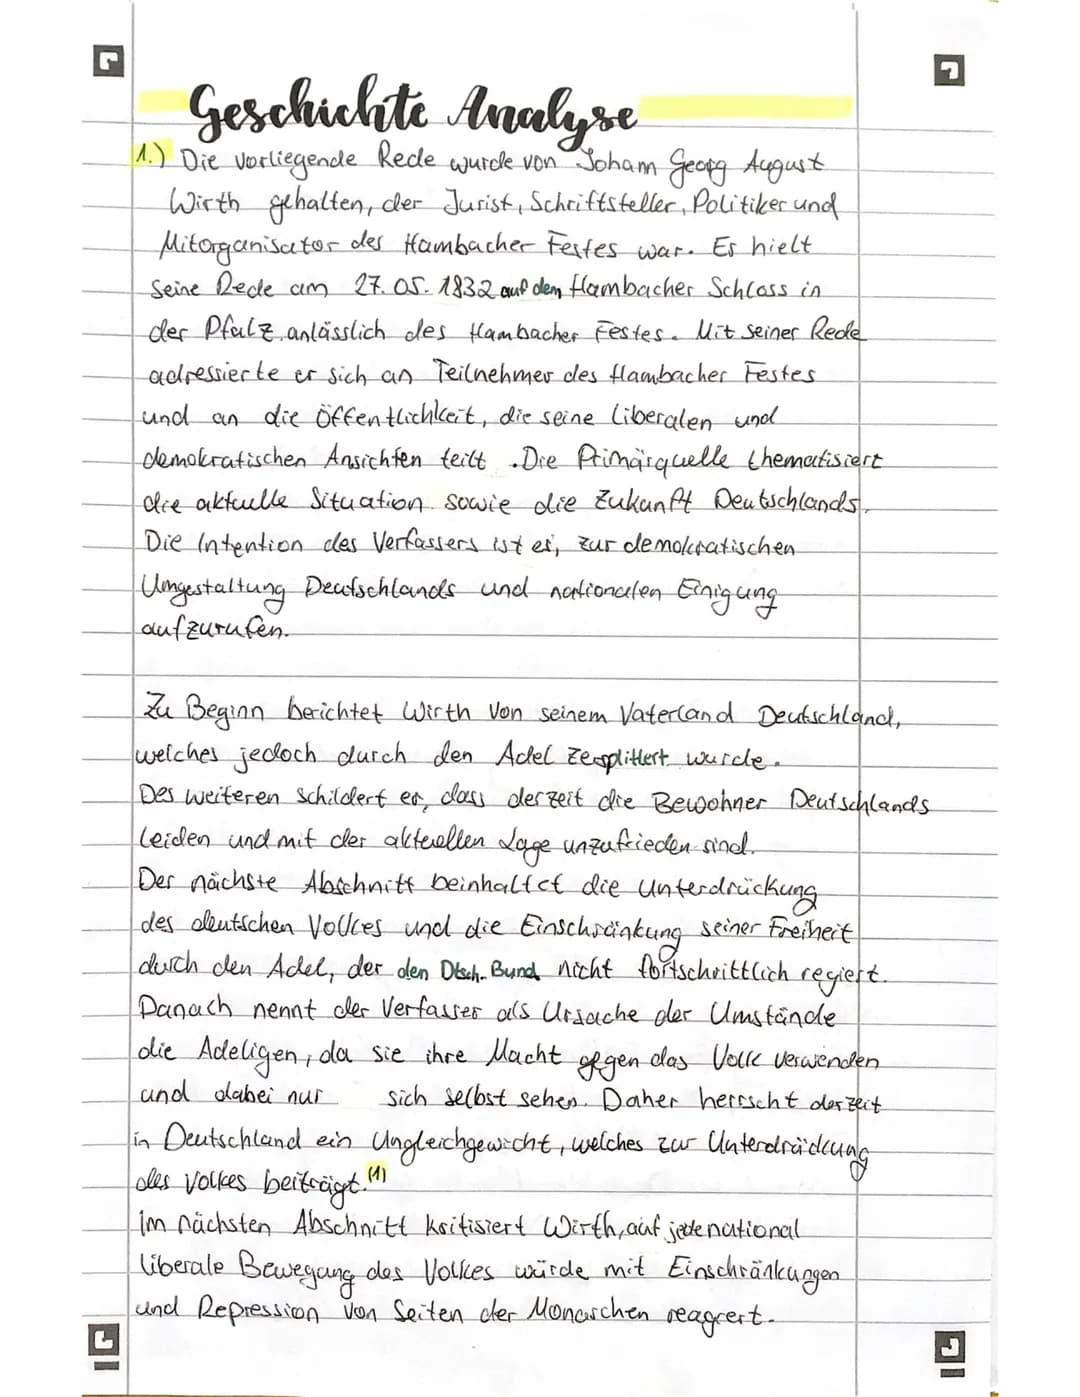 Geschichte Analyse
1.) Die vorliegende Rede wurde von Johann Georg August
Wirth gehalten, der Jurist, Schriftsteller, Politiker und
Mitorganisator des Hambacher Festes war. Er hielt
seine Rede am 27.05.1832 auf dem Hambacher Schloss in
der Pfalz anlässlich des Hambacher Festes. Mit seiner Rede
adressierte er sich an Teilnehmer des Hambacher Festes
und an die Öffentlichkeit, die seine liberalen und
demokratischen Ansichten teilt. Die Primärquelle thematisiert
die aktuelle Situation sowie die Zukunft Deutschlands.
Die Intention des Verfassers ist es, zur demokratischen
Umgestaltung Deutschlands und nationalen Einigung
aufzurufen.
Zu Beginn berichtet Wirth von seinem Vaterland Deutschland,
welches jedoch durch den Adel zersplittert wurde.
Des weiteren schildert er, dass derzeit die Bewohner Deutschlands
leiden und mit der aktuellen Lage unzufrieden sind.
Der nächste Abschnitt beinhaltet die Unterdrückung
des deutschen Volkes und die Einschränkung seiner Freiheit
durch den Adel, der den Dtsch. Bund nicht fortschrittlich regiert.
Danach nennt der Verfasser als Ursache der Umstände
die Adeligen, da sie ihre Macht gegen das Volk verwenden
und dabei nur sich selbst sehen. Daher herrscht derzeit
in Deutschland ein Ungleichgewicht, welches zur Unterdrückung
des Volkes beiträgt. (1)
Im nächsten Abschnitt kritisiert Wirth, auf jede national
liberale Bewegung des Volkes würde mit Einschränkungen
und Repression von Seiten der Monarchen reagiert.